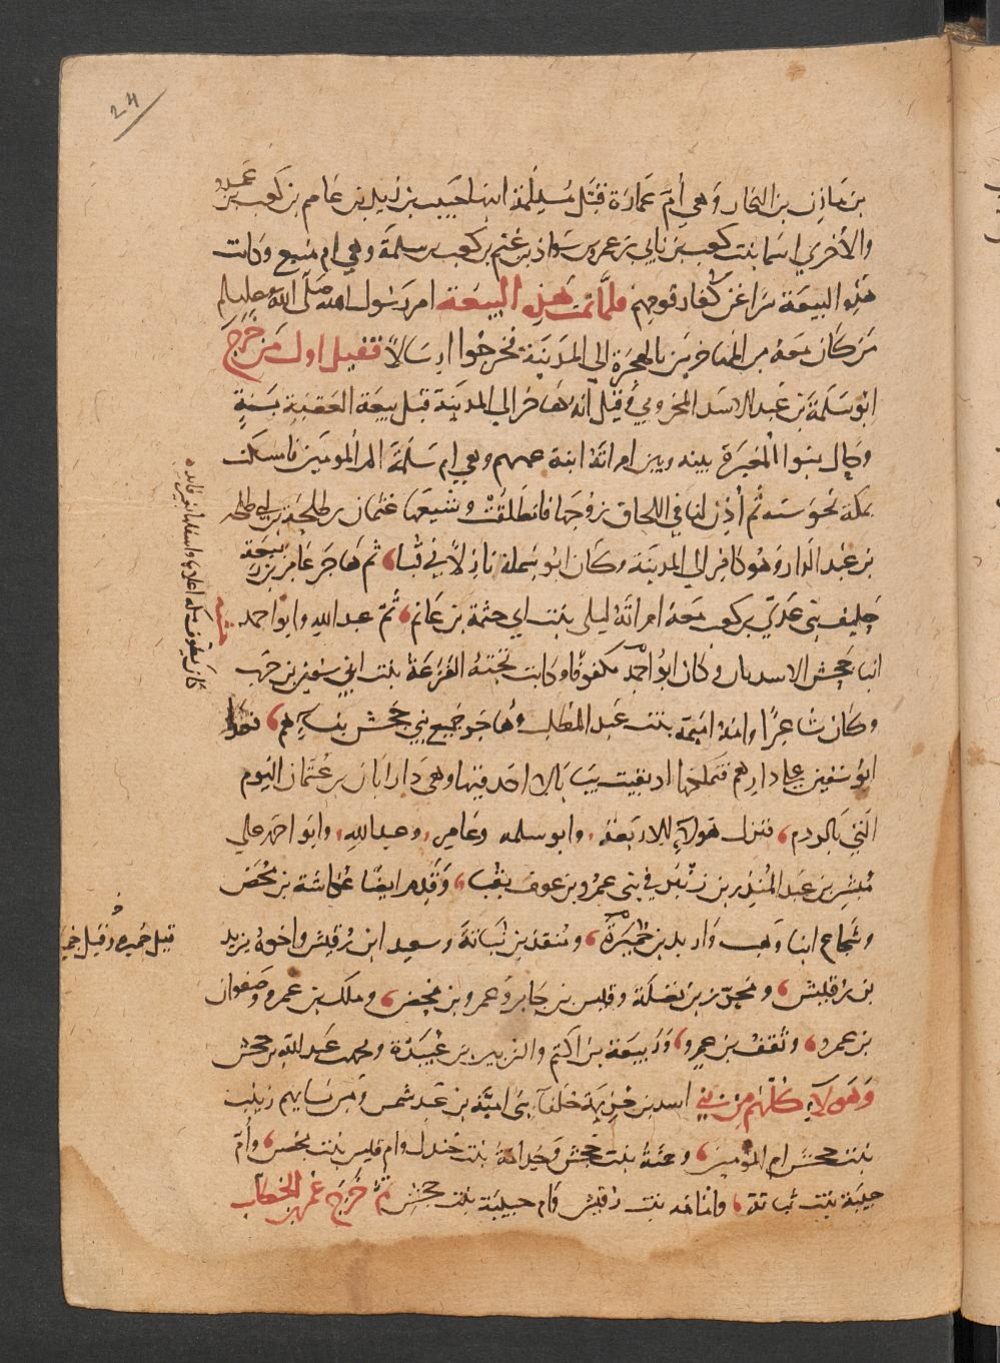 24
بن مازن بن النجار وهي أم عمارة قتل مسيلمة ابنها حبيب بن زيد بن عاصم بن كعب بن عمرو
والأخرى اسما بنت كعب بن نابي بن عمرو بن سواد بن غنم بن كعب بن سلمة وهي ام منيع وكانت
هذه البيعة سرا عن كفار قومهم فلما تمت هذه البيعة امر رسول الله صلى الله عليه
من كان معه من المهاجرين بالهجرة الى المدينة فخرجوا ارسالا فقيل اول من خرج
ابو سلمة بن عبد الاسد المخزومي وقيل انه هاجر الى المدينة قبل بيعة العقبة بسنة
وحال بنوا المغيرة بينه وبين امراته ابنة عمهم وهي ام سلمة ام المومنين فامسكت
بمكة نحو سنه ثم أذن لها في اللحاق بزوجها فانطلقت وشيعها عثمان بن طلحة بن ابي طلحه
بن عبد الدار وهو كافر الى المدينة وكان ابو سلمة نازلا في قبا ثم هاجر عامر بن ربيعة
حليف بني عدي بن كعب معه امراته ليلى بنت ابي حثمة بن غانم ثم عبد الله وابو احمد
ابنا جحش الاسديان وكان ابو احمد مكفوفا وكانت تحته الفرعة بنت ابي سفين بن حرب
وكان شاعرا وامه اميمة بنت عبد المطلب وهاجر جميع بني جحش بنسآيهم فعدا
ابو سفين على دارهم فتملكها اذ بقيت يبابا لا احد فيها وهي دار ابان بن عثمان اليوم
التي بالردم فنزل هولآء الاربعة وابو سلمه وعامر وعبد الله وابو احمد على
مبشر بن عبد المنذر بن زنبر في بني عمرو بن عوف بقبا وقدم ايضا عكاشة بن محصن
وشجاع ابنا وهب واربد بن حميرة ومنقذ بن نباتة وسعيد ابن رقيش واخوه يزيد
بن رقيش ومحرز بن نضلة وقيس بن جابر وعمرو بن محصن وملك بن عمرو وصفوان
بن عمرو وثقف بن عمرو وربيعة بن اكثم والزبير بن عبيدة وجميع عبد الله بن جحش
وهولآء كلهم من بني اسد بن خزيمة حلفآء بني امية بن عبد شمس ومن نسايهم زينب
بنت جحش ام المومنين وحمنة بنت جحش وجذامة بنت جندل وام قيس بنت محصن وأم
حبيبة بنت نباتة وامامه بنت رقيش وام حبيبة بنت جحش ثم خرج عمر بن الخطاب
قيل حميره وقيل